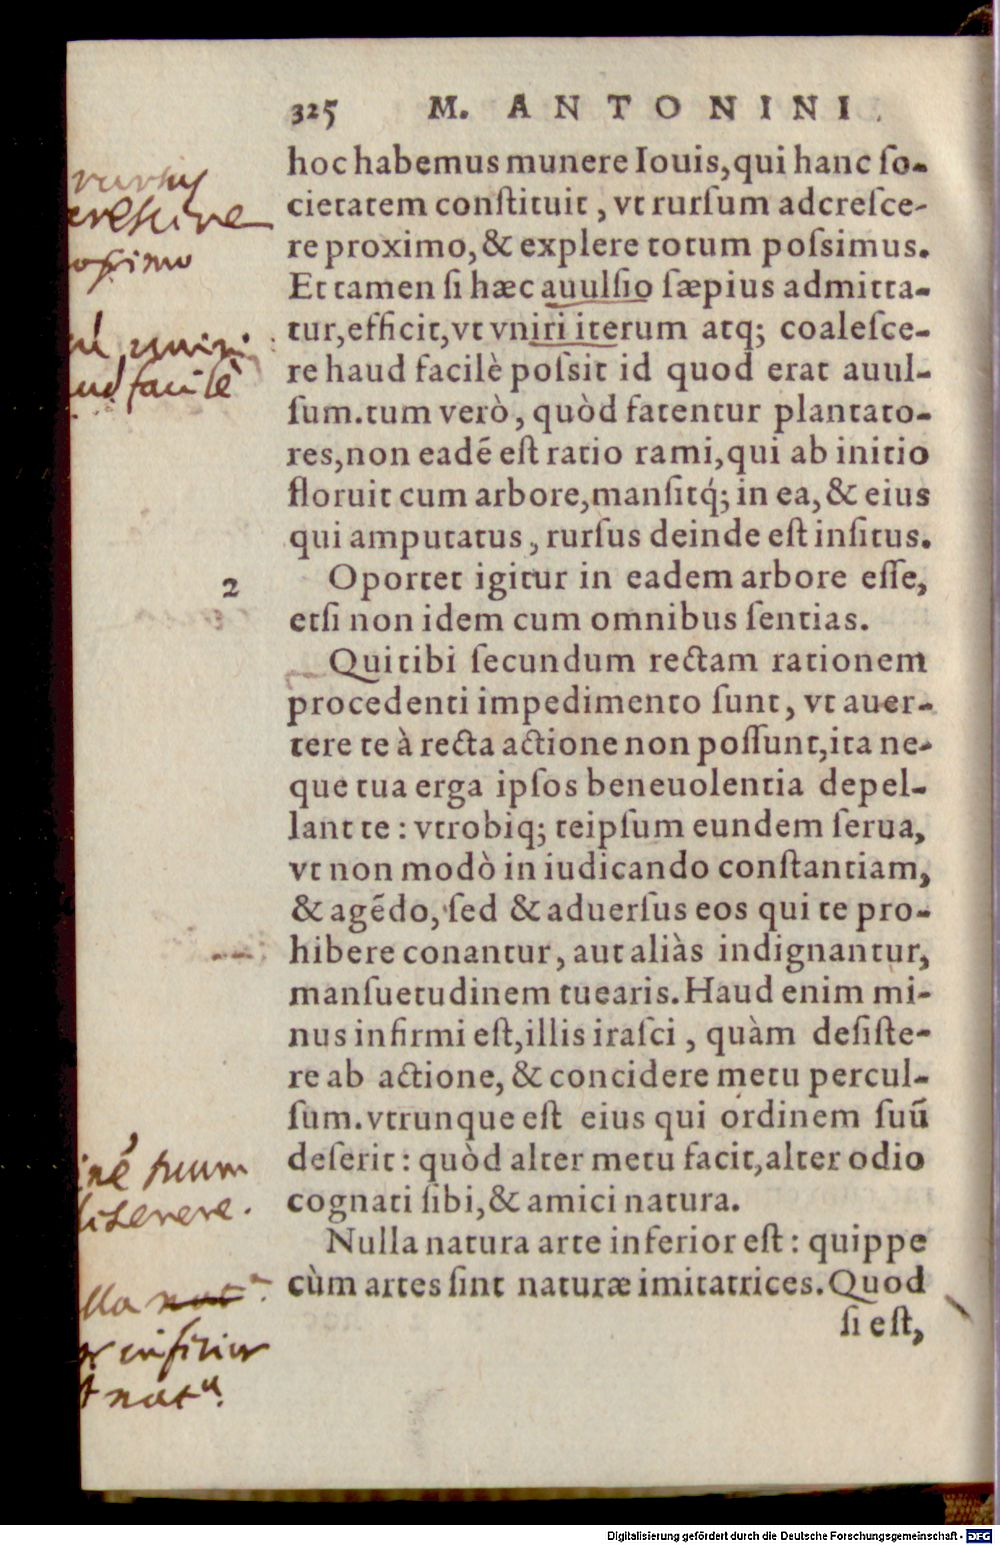 325 M. ANTONINI
hoc habemus munere Iouis, qui hanc ſo-
cietatem conſtituit, vt rurſum adcreſce-
re proximo, & explere totum poſsimus.
Et tamen ſi hæc auulſio ſæpius admitta-
tur, efficit, vt vniri iterum atq; coaleſce-
re haud facilè poſsit id quod erat auul-
ſum. tum verò, quòd fatentur plantato-
res, non eadē eſt ratio rami, qui ab initio
floruit cum arbore, manſitq́; in ea, & eius
qui amputatus, rurſus deinde eſt inſitus.
2 Oportet igitur in eadem arbore eſſe,
etſi non idem cum omnibus ſentias.
Qui tibi ſecundum rectam rationem
procedenti impedimento ſunt, vt auer-
tere te à recta actione non poſſunt, ita ne-
que tua erga ipſos beneuolentia depel-
lant te: vtrobiq; teipſum eundem ſerua,
vt non modò in iudicando conſtantiam,
& agēdo, ſed & aduerſus eos qui te pro-
hibere conantur, aut aliàs indignantur,
manſuetudinem tuearis. Haud enim mi-
nus infirmi eſt, illis iraſci, quàm deſiſte-
re ab actione, & concidere metu percul-
ſum. vtrunque eſt eius qui ordinem ſuū
deſerit: quòd alter metu facit, alter odio
cognati ſibi, & amici natura.
Nulla natura arte inferior eſt: quippe
cùm artes ſint naturæ imitatrices. Quod
ſi eſt,
haud facilè
Digitalisierung gefördert durch die Deutsche Forschungsgemeinschaft - DFG